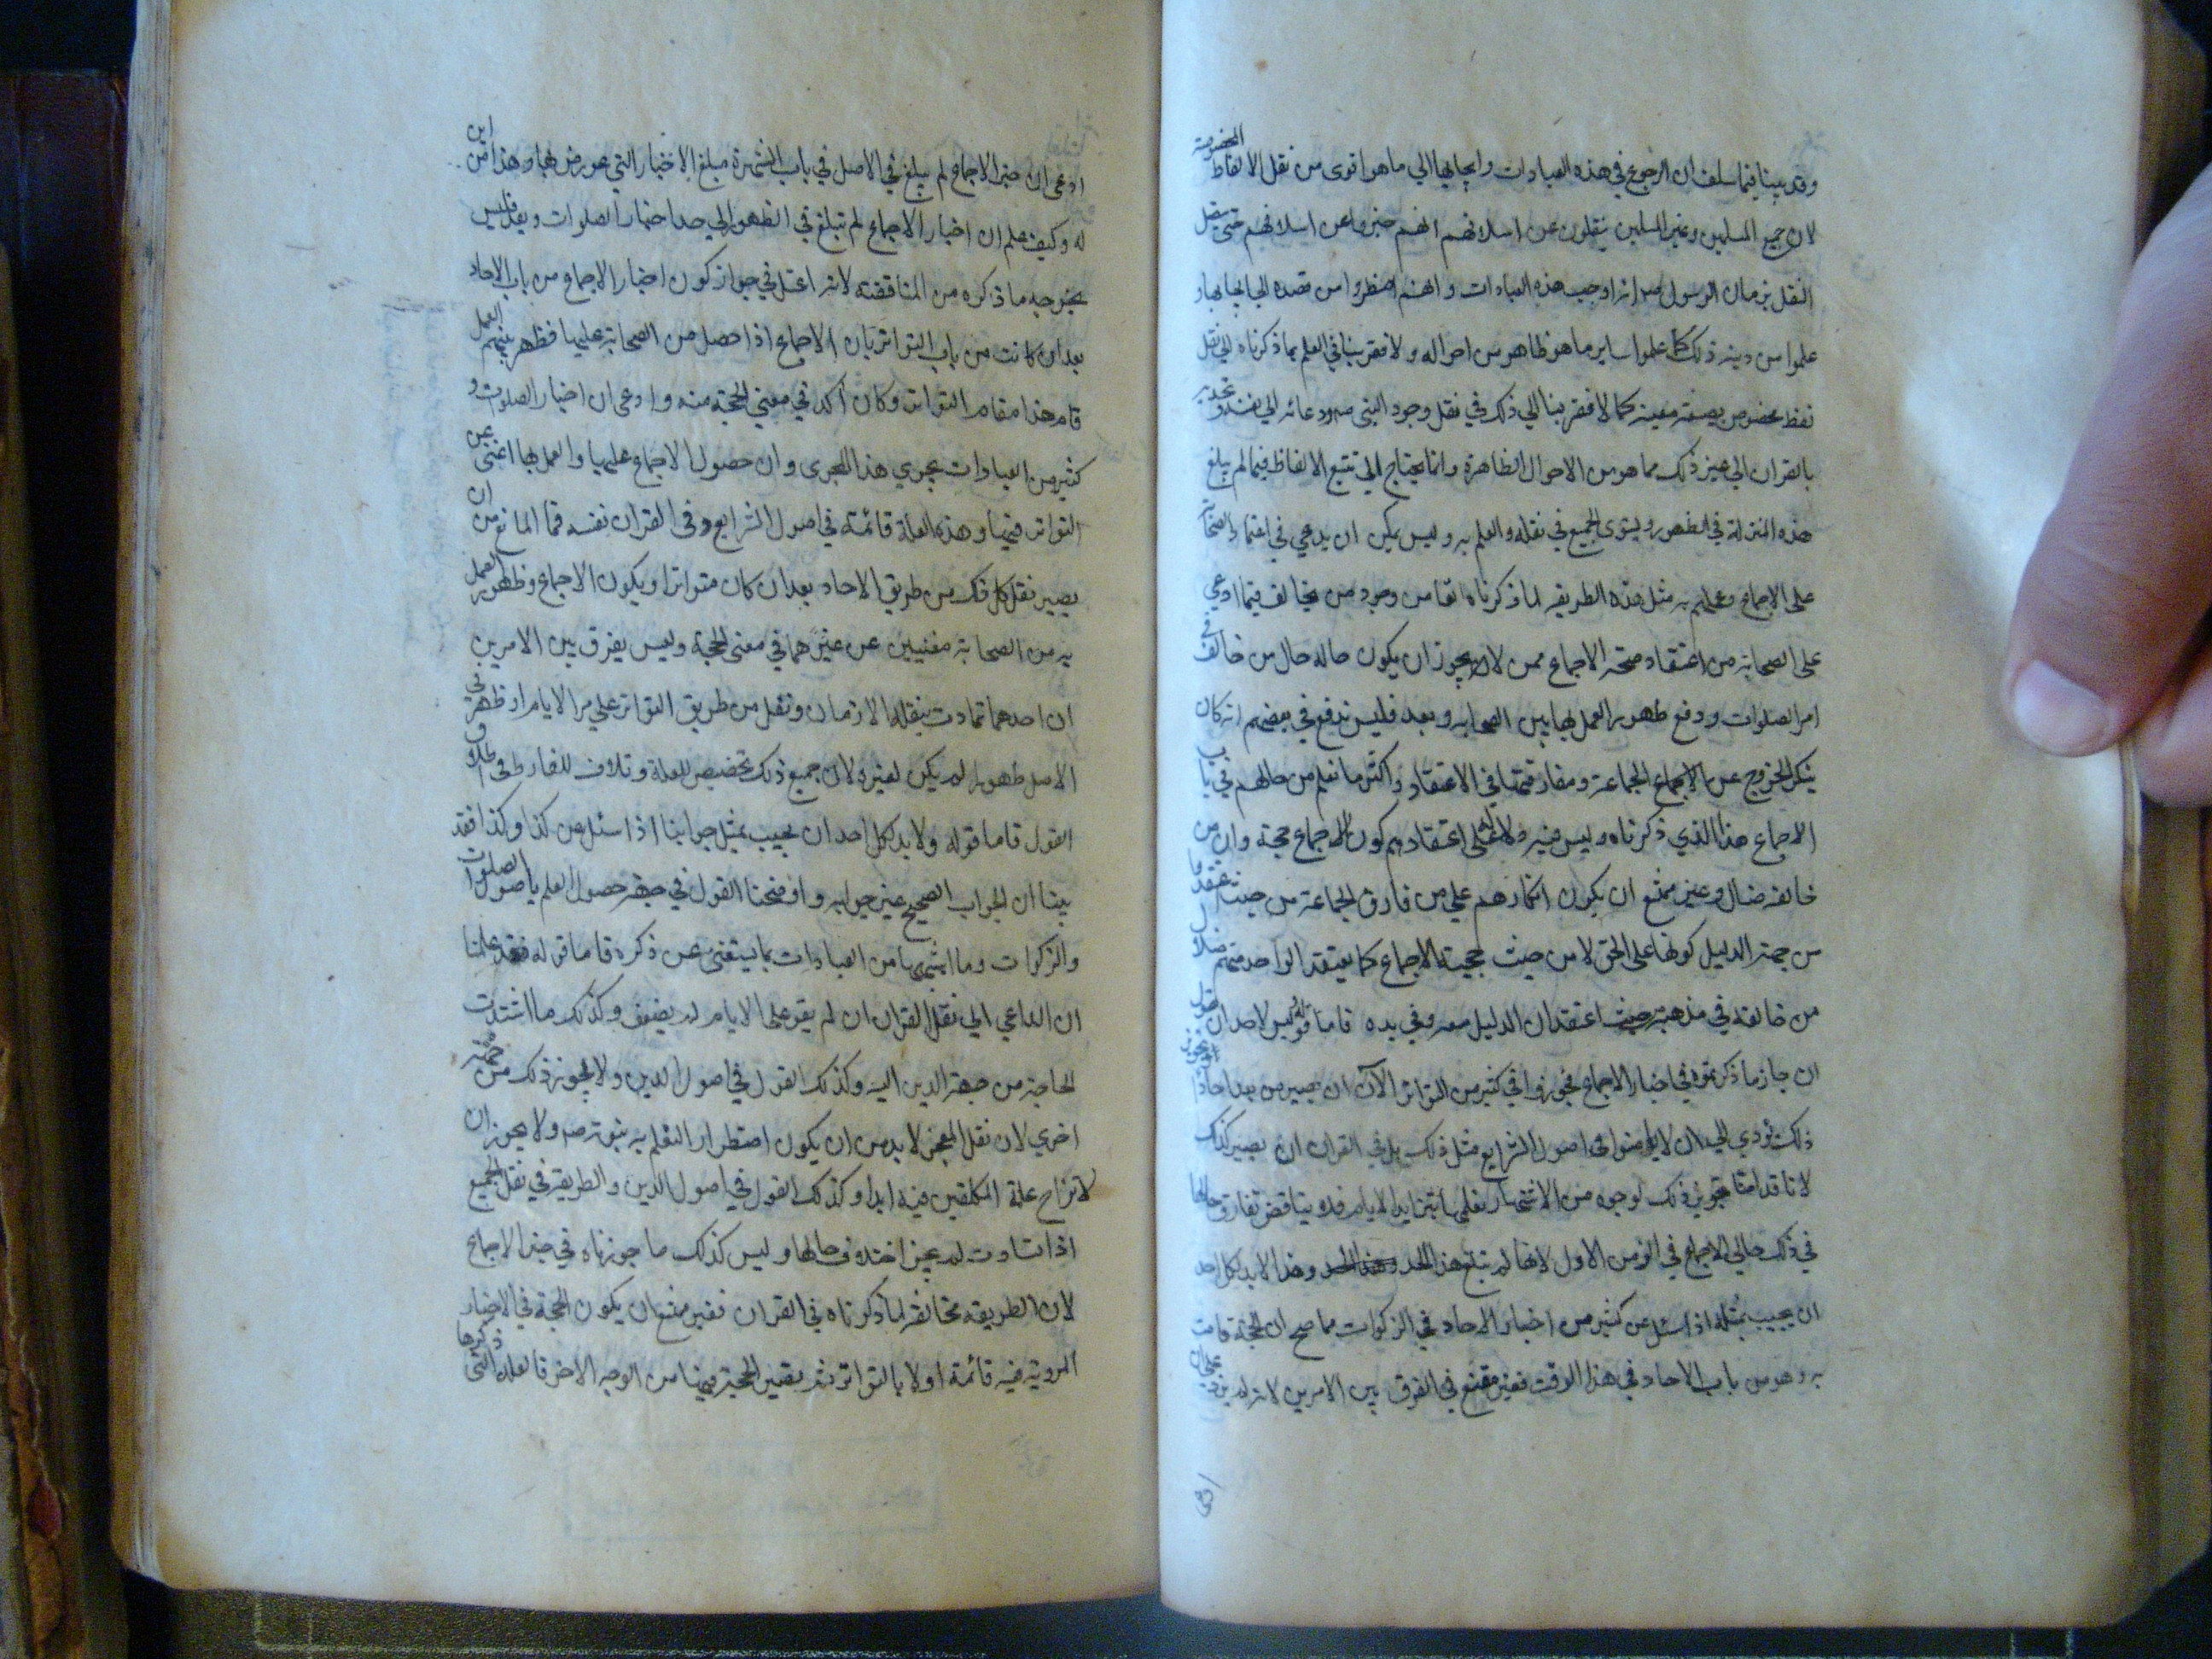 وقد بينا فيما سلف ان الرجوع في هذه العبادات وايجابها الي ما هو اقوى من نقل الالفاظ المخصوصة
لان جميع المسلمين وغير المسلمين ينقلون عن اسلافهم انهم خبروا عن اسلافهم حتى يتصل
النقل بزمان الرسول صـ انه اوجب هذه العبادات وانهم اضطروا من قصده الي ايجابها و
علموا من دينه ذلك كما علموا ساير ما هو ظاهر من احواله ولا فقر بنا في العلم بما ذكرناه الي نقل
لفظ مخصوص بصيغة معينة كما لا فقر بنا الي ذلك في نقل وجود النبي صـ ودعائه الي نفسه وتحديه
بالقران الي غير ذلك مما هو من الاحوال الظاهرة وانما يحتاج الي تتبع الالفاظ فيما لم يبلغ
هذه المنزلة في الظهور ويستوى الجميع في نقله والعلم به وليس يمكن ان يدعي في اعتماد الصحابة
على الاجماع وعملهم به مثل هذه الطريقه لما ذكرناه انفا من وجود من يخالف فيما ادعي
على الصحابة من اعتقاد صحة الاجماع ممن لا يجوز ان يكون حاله حال من خالف في
امر الصلوات ودفع ظهور العمل بها بين الصحابه وبعد فليس ندفع في بعضهم انه كان
ينكر الخروج عن الاجماع الجماعة ومفارقتها في الاعتقاد واكثر ما نعلم من حالهم في باب
الاجماع هذا الذي ذكرناه وليس فيه دلالة على اعتقادهم كون الاجماع حجة وان من
خالفه ضال وغير ممتنع ان يكون انكارهم علي من فارق الجماعة من حيث اعتقدوا
من جهة الدليل كونها على الحق لا من حيث حجية الاجماع كما يعتقد الواحد منهم ضلال
من خالفه في مذهبه حيث اعتقد ان الدليل معه وفي يده فاما قوله ليس لاحد ان يقول
ان جاز ما ذكرتموه في اخبار الاجماع فجوزوا في كثير من التواتر الآن ان يصير من بعد احادا
ذلك يؤدي الي ان لا يؤمنوا في اصول الشرايع مثل ذلك بل في القران ان يصير كذلك
لانا قد امنا تجويز ذلك لوجوه من الاشتهار نعلمها تتزايد الايام فلا يتناقض تفارق حالها
في ذلك حالي الاجماع في الزمن الاول لانها لم تبلغ هذا الحد وهذا لابد لكل احد
ان يجيب بمثله اذا سئل عن كثير من اخبار الاحاد في الزكوات مما صح ان الحجة قامت
به وهو من باب الاحاد في هذا الوقت فغير مقنع في الفرق بين الامرين لانه لم يزد علي ان
ادعى ان خبر الاجماع لم يبلغ في الاصل في باب الشهرة مبلغ الاخبار التي عورض بها وهذا من اين
له وكيف علم ان اخبار الاجماع لم تبلغ في الظهور الي حد اخبار الصلوات وبعد فليس
يخرجه ما ذكره من المناقضة لانه اعتل في جواز كون اخبار الاجماع من باب الاحاد
بعد ان كانت من باب التواتر بان الاجماع اذا حصل من الصحابة عليها فظهر بينهم العمل
قام هذا مقام التواتر وكان آكد في معنى الحجة منه وادعى ان اخبار الصلوات و
كثير من العبادات يجري هذا المجرى وان حصول الاجماع عليها والعمل بها اغنى عن
التواتر فيها وهذه العلة قائمة في اصول الشرايع وفي القران نفسه فما المانع من ان
يصير نقل كل ذلك من طريق الاحاد بعد ان كان متواترا ويكون الاجماع وظهور العمل
به من الصحابة مغنيين عن غيرهما في معنى الحجة وليس يفرق بين الامرين
ان احدهما تمادت بنقله الازمان ونقل من طريق التواتر علي مر الايام او ظهر في
الاصل ظهورا لم يكن لغيره لان جميع ذلك تخصيص للعلة وتلاف للفارط في اطلاق
القول فاما قوله ولابد لكل احد ان يجيب بمثل جوابنا اذا سئل عن كذا وكذا فقد
بينا ان الجواب الصحيح غير جوابه واوضحنا القول في جهة حصول العلم باصول الصلوات
والزكوات وما اشبهها من العبادات بما يستغنى عن ذكره فاما قوله فقد علمنا
ان الداعي الي نقل القران ان لم يقو على الايام لم يضعف وكذلك ما اشتدت
الحاجة من جهة الدين اليه وكذلك القول في اصول الدين ولا يجوز ذلك من جهة
اخرى لان نقل المعجز لابد من ان يكون اضطرار العلم به بتواتر صـ ولا يجوز ان
لا تزاح علة المكلفين فيه ابدا وكذلك القول في اصول الدين والطريقة في نقل الجميع
اذا تساوت لم يجز اختلاف حالها وليس كذلك ما جوزناه في خبر الاجماع
لان الطريقه مخالفة لما ذكرناه في القران فغير ممتنع ان يكون الحجة في الاخبار
المروية فيه قائمة اولا بالتواتر ثم يصير الحجة فيها من الوجه الاخر فالعلة التي ذكرها